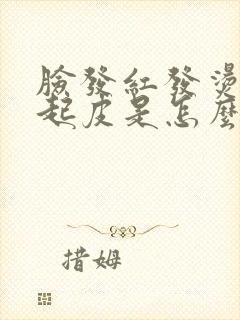 臉發紅發燙
起皮是怎麼
措姆